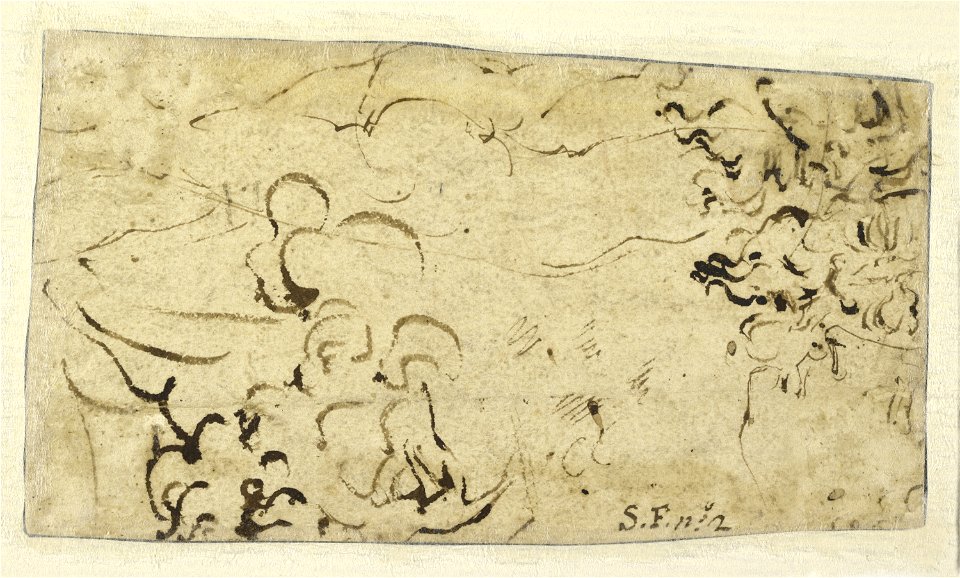 S.F. nº 2